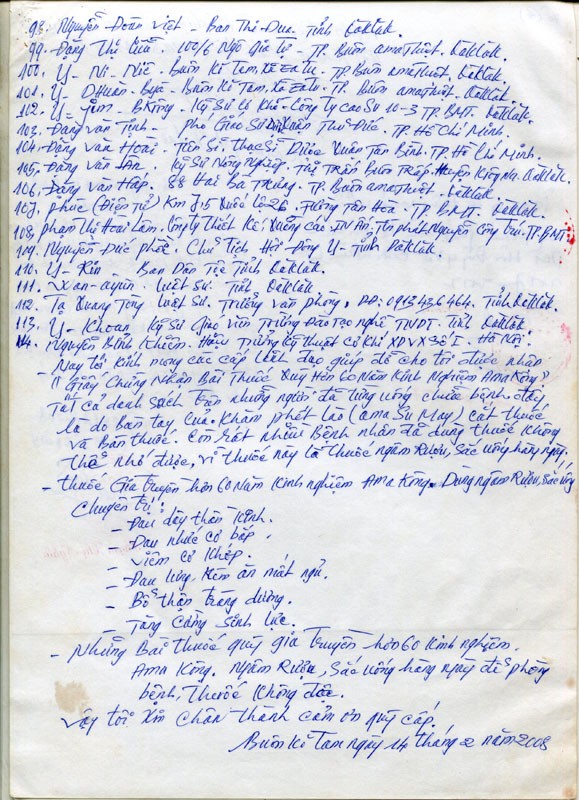 98. Nguyễn Đoàn Việt - Ban Thi Đua Tỉnh ĐăkLăk.
99. Đặng Thị Cúc. 100/6 Ngô Gia Tự - TP. Buôn amathuột. ĐăkLăk.
100. Y - Ni - Niê. Buôn Kĩ Tam, Xã Eatu. TP. Buôn amathuột. ĐăkLăk.
101. Y - Dhuăn. Byă - Buôn Kĩ Tam, Xã Eatu. TP. Buôn amathuột. ĐăkLăk.
102. Y - Jim - BKrông. Kỹ Sư Cơ Khí - Công ty cao Su 10-3 TP. BMT. ĐăkLăk.
103. Đặng Văn Tịnh. Phó Giáo Sư Thủ Đức. TP. Hồ Chí Minh.
104. Đặng Văn Hoài. Tiến Sĩ Thạc Sĩ Dược Quận Tân Bình. TP. Hồ Chí Minh.
105. Đặng Văn An. Kỹ Sư Nông Nghiệp. Thị Trấn Buôn Trấp. Huyện Krông Na. ĐăkLăk.
106. Đặng Văn Háp. 88 Hai Bà Trưng. TP. Buôn amathuột. ĐăkLăk.
107. Phúc (Điện Tử) Km 7,5 Quốc Lộ 26. Phường Tân Hòa. TP. BMT. ĐăkLăk.
108. Phạm Thị Hoài Lâm. Công ty Thiết Kế. Nguyễn Công Trứ. TP. BMT.
109. Nguyễn Đức Phối. Chủ Tịch Hội Đồng Y - Tỉnh ĐăkLăk.
110. Y - Kin Ban Dân Tộc Tỉnh ĐăkLăk.
111. Xuan - ayun Luật Sư Tỉnh ĐăkLăk
112. Tạ Quang Tòng Luật Sư. Trưởng Văn phòng. DĐ. 0913436464. Tỉnh ĐăkLăk.
113. Y - Khoan Kỹ Sư Giáo Viên Trường Đào tạo nghề TNDT. Tỉnh ĐăkLăk.
114. Nguyễn Bỉnh Khiêm. Hiệu Trưởng Kỹ Thuật Cơ Khí XDVX Số I. Hà Nội.
- Nay tôi kính mong các cấp lãnh đạo giúp đỡ cho tôi được nhận
"Giấy Chứng Nhận Bài Thuốc Quý Hơn 60 Năm Kinh Nghiệm Ama Kông"
Tất cả danh Sách trên những người đã từng uống chữa bệnh đây
là do bàn tay, của. Khăm Phết Lào (Ama Su May) cắt thuốc
và Bán thuốc. Còn rất nhiều Bệnh nhân đã dùng thuốc không
thể nhớ được, vì thuốc này là thuốc ngâm Rượu, Sắc uống hàng ngày.
- Thuốc Gia truyền hơn 60 Năm Kinh nghiệm Ama Kông. Dùng ngâm Rượu, Sắc uống
Chuyên trị:
- Đau dây thần kinh.
- Đau nhức cơ bắp.
- Viêm cơ khớp.
- Đau lưng, Kém ăn mất ngủ.
- Bổ thận tráng dương.
- Tăng Cường Sinh lực.
- Những Bài thuốc quý gia truyền hơn 60 Kinh nghiệm.
Ama Kông. Ngâm Rượu, Sắc uống hàng ngày để phòng
bệnh, Thuốc không độc.
Vậy tôi xin chân thành cảm ơn quý cấp.
Buôn Kĩ Tam ngày 14 tháng 2 năm 2008